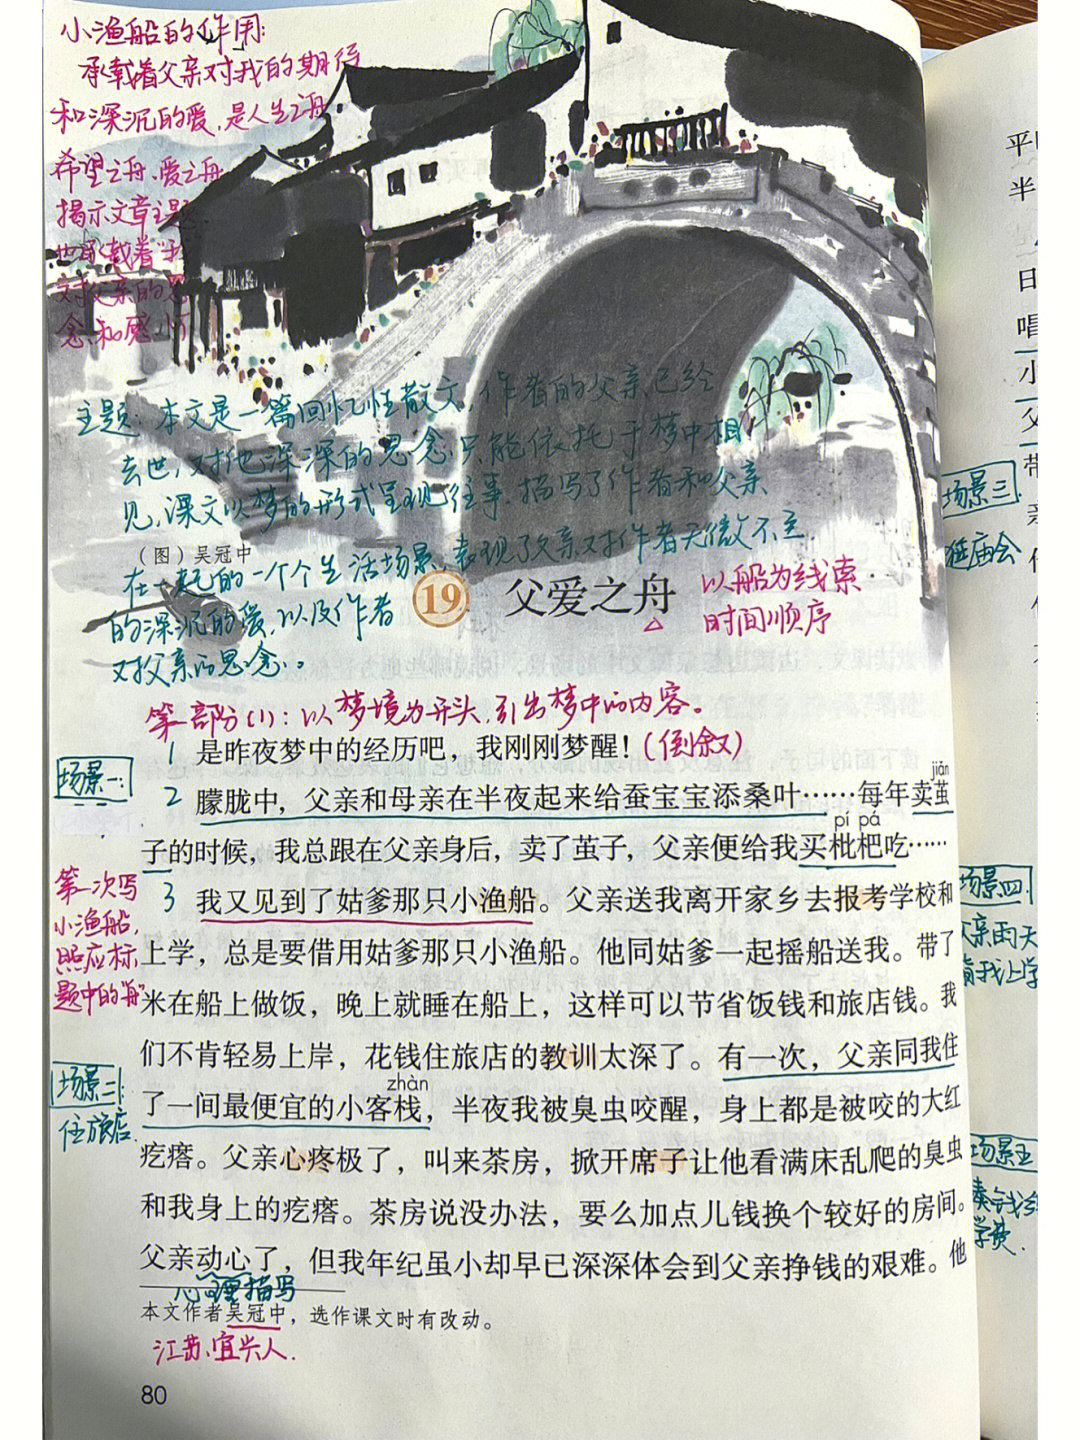 小渔船的作用:
承载着父亲对我的期待
和深沉的爱,是人生之舟
希望之舟、爱之舟
揭示文章主题
也承载着"我
对父亲的思
念和感
主题:本文是一篇回忆性散文,作者的父亲已经
去世,对他深深的思念只能依托于梦中相
见,课文以梦的形式呈现往事,描写了作者和父亲
(图)吴冠中
在一起的一个个生活场景,表现了父亲对作者无微不至
的深沉的爱,以及作者
对父亲的思念。
19 父爱之舟
以船为线索
时间顺序
第一部分(1):以梦境为开头,引出梦中的内容。
1 是昨夜梦中的经历吧,我刚刚梦醒!(倒叙)
场景一:
jiǎn
2 朦胧中,父亲和母亲在半夜起来给蚕宝宝添桑叶……每年卖茧
pí pá
子的时候,我总跟在父亲身后,卖了茧子,父亲便给我买枇杷吃……
3 我又见到了姑爹那只小渔船。父亲送我离开家乡去报考学校和
上学,总是要借用姑爹那只小渔船。他同姑爹一起摇船送我。带了
米在船上做饭,晚上就睡在船上,这样可以节省饭钱和旅店钱。我
们不肯轻易上岸,花钱住旅店的教训太深了。有一次,父亲同我住
zhàn
了一间最便宜的小客栈,半夜我被臭虫咬醒,身上都是被咬的大红
疙瘩。父亲心疼极了,叫来茶房,掀开席子让他看满床乱爬的臭虫
和我身上的疙瘩。茶房说没办法,要么加点儿钱换个较好的房间。
父亲动心了,但我年纪虽小却早已深深体会到父亲挣钱的艰难。他
第一次写
小渔船,
照应标
题中的"舟"
场景二:
住旅店.
心理描写
本文作者吴冠中,选作课文时有改动。
江苏宜兴人.
80
平
半
日
唱
小
父
带
场景三.
逛庙会
场景四.
父亲雨天
背我上学
场景五
凑钱
学费.